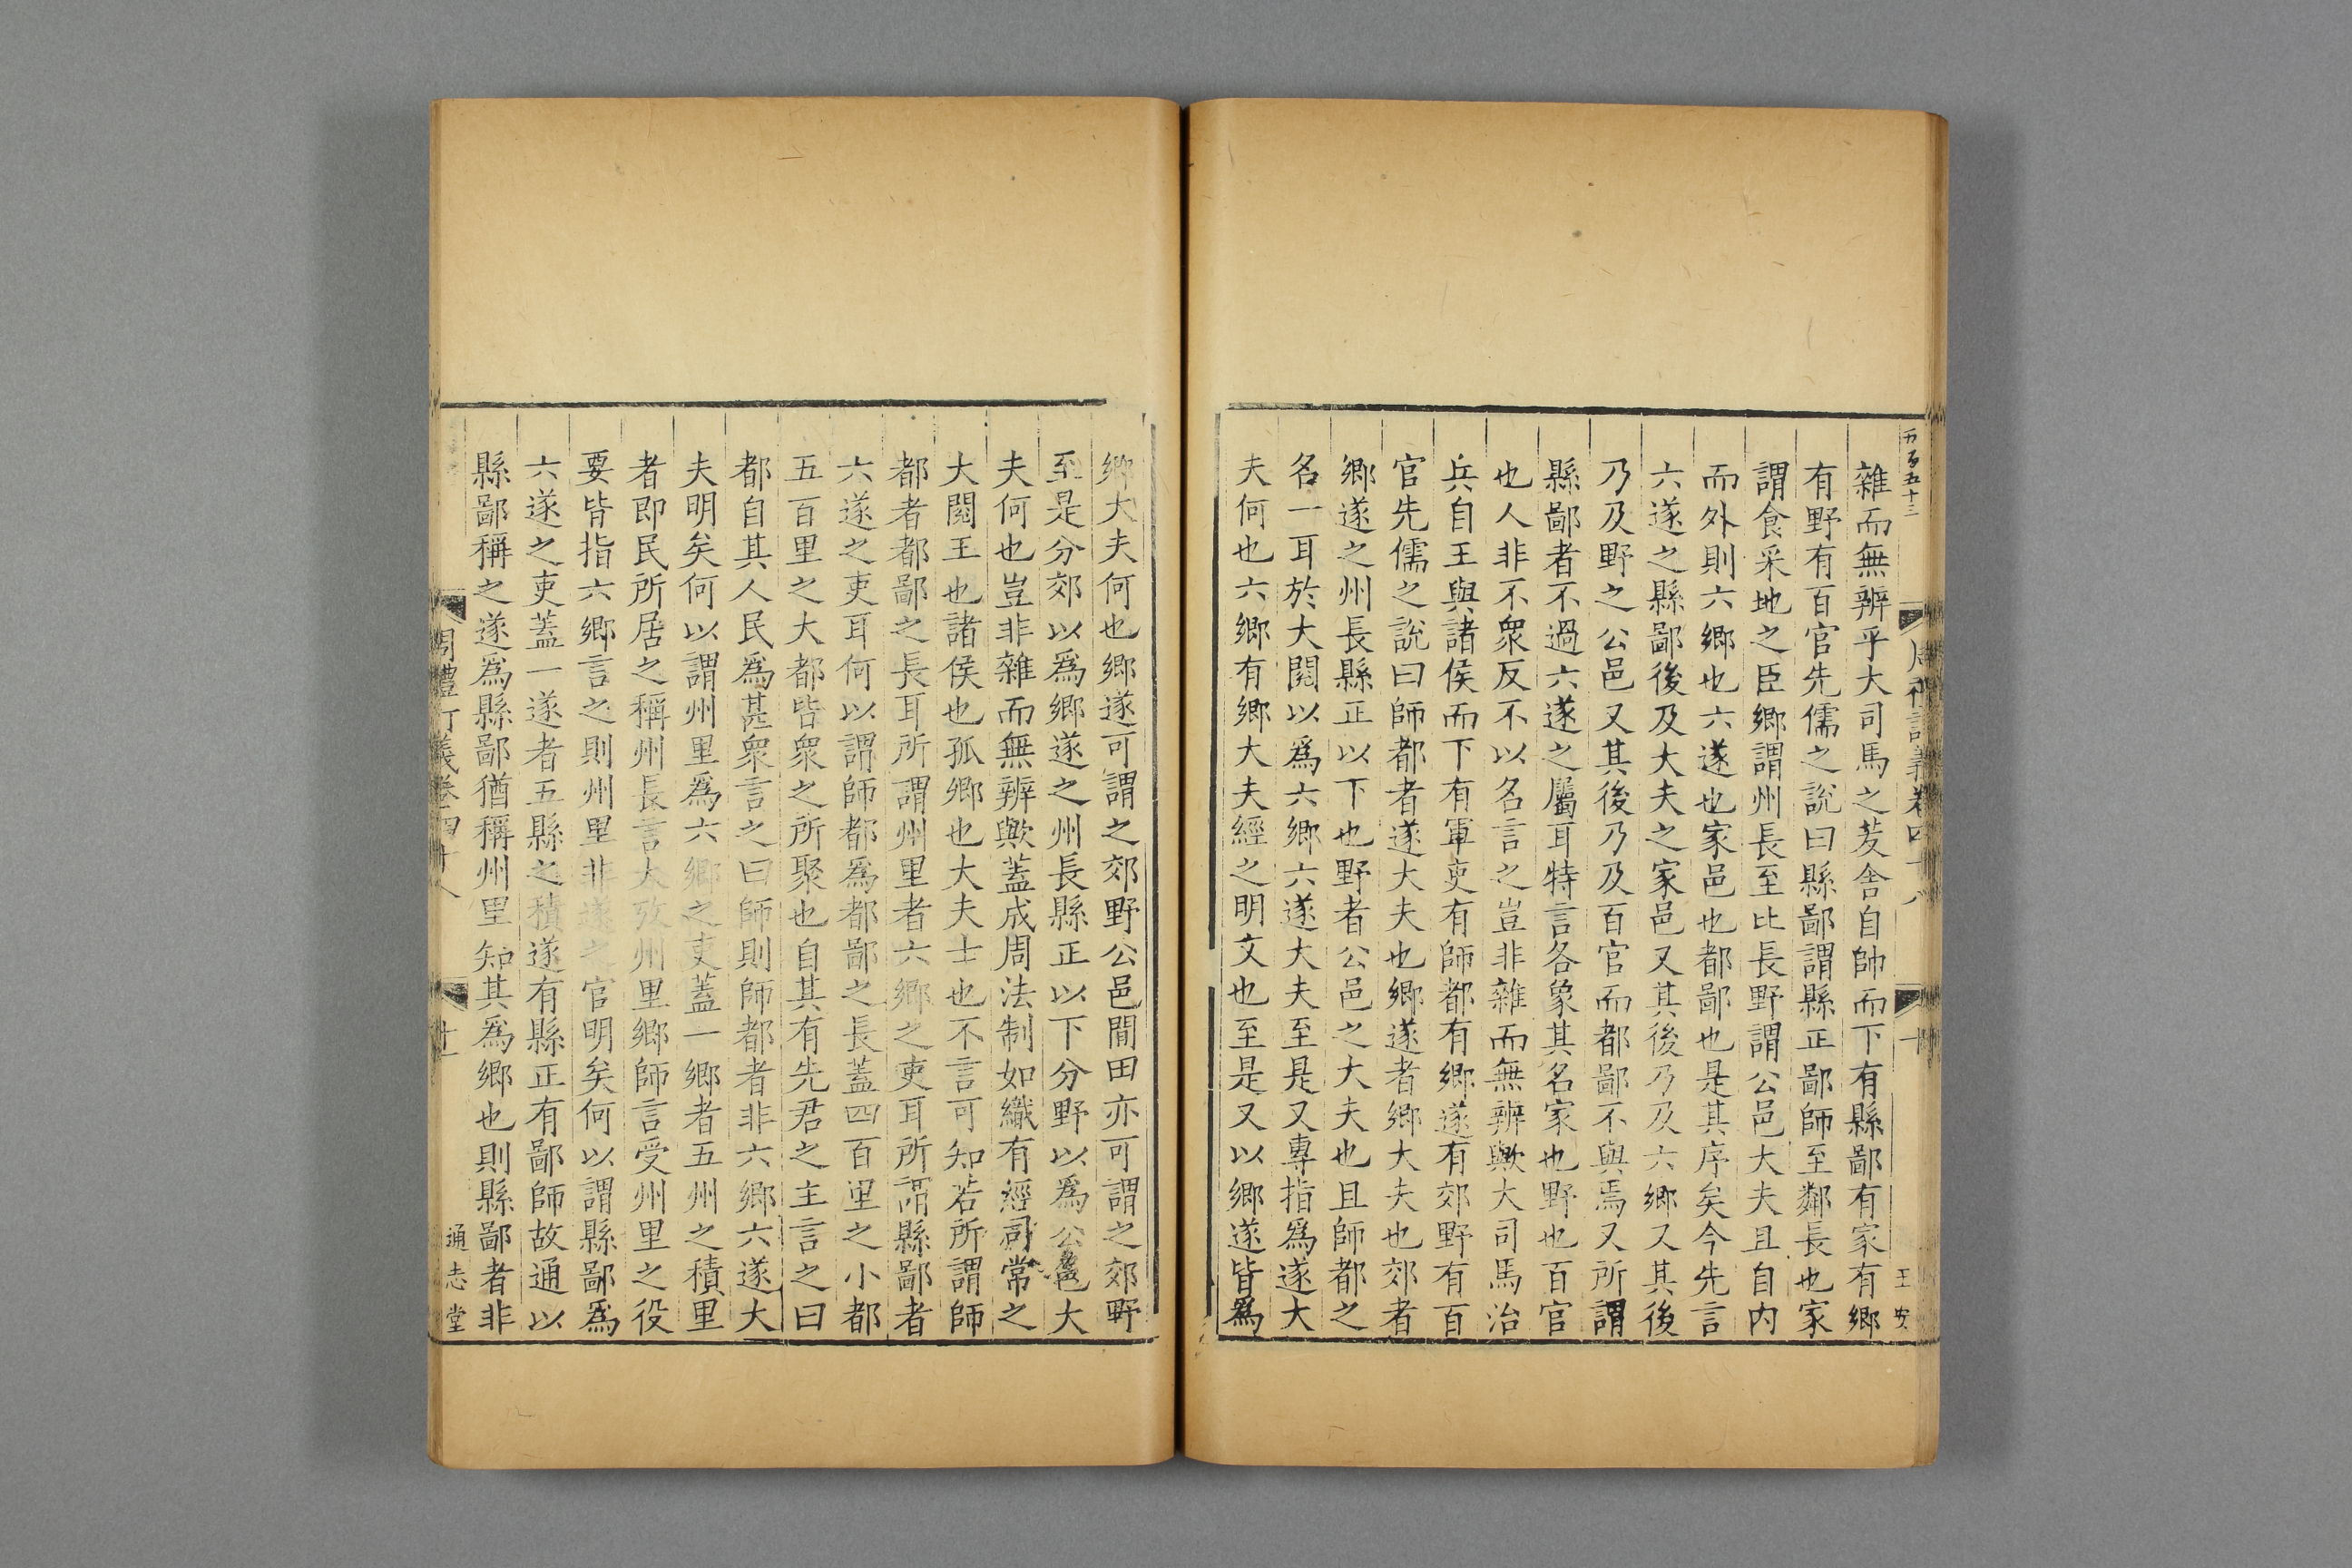 五百五十三
雜而無辨乎大司馬之茇舎自帥而下有縣鄙有家有鄉
有野有百官先儒之說曰縣鄙謂縣正鄙師至鄰長也家
謂食采地之臣鄉謂州長至比長野謂公邑大夫且自内
而外則六鄉也六遂也家邑也都鄙也是其序矣今先言
六遂之縣鄙後及大夫之家邑又其後乃及六鄉又其後
乃及野之公邑又其後乃及百官而都鄙不與焉又所謂
縣鄙者不過六遂之屬耳特言各象其名家也野也百官
也人非不衆反不以名言之豈非雜而無辨歟大司馬治
兵自王與諸侯而下有軍吏有師都有鄉遂有郊野有百
官先儒之說曰師都者遂大夫也鄉遂者鄉大夫也郊者
鄉遂之州長縣正以下也野者公邑之大夫也且師都之
名一耳於大閱以爲六鄉六遂大夫至是又專指爲遂大
夫何也六鄉有鄉大夫經之明文也至是又以鄉遂皆爲
周禮訂義卷四十八
十
王安
鄉大夫何也鄉遂可謂之郊野公邑閒田亦可謂之郊野
至是分郊以爲鄉遂之州長縣正以下分野以爲公邑大
夫何也豈非雜而無辨歟蓋成周法制如織有經司常之
大閱王也諸侯也孤鄉也大夫士也不言可知若所謂師
都者都鄙之長耳所謂州里者六鄉之吏耳所謂縣鄙者
六遂之吏耳何以謂師都爲都鄙之長蓋四百里之小都
五百里之大都皆衆之所聚也自其有先君之主言之曰
都自其人民爲甚衆言之曰師則師都者非六鄉六遂大
夫明矣何以謂州里爲六鄉之吏蓋一鄉者五州之積里
者即民所居之稱州長言大攷州里鄉師言受州里之役
要皆指六鄉言之則州里非遂之官明矣何以謂縣鄙爲
六遂之吏蓋一遂者五縣之積遂有縣正有鄙師故通以
縣鄙稱之遂爲縣鄙猶稱州里知其爲鄉也則縣鄙者非
周禮訂義卷四十八
十一
通志堂